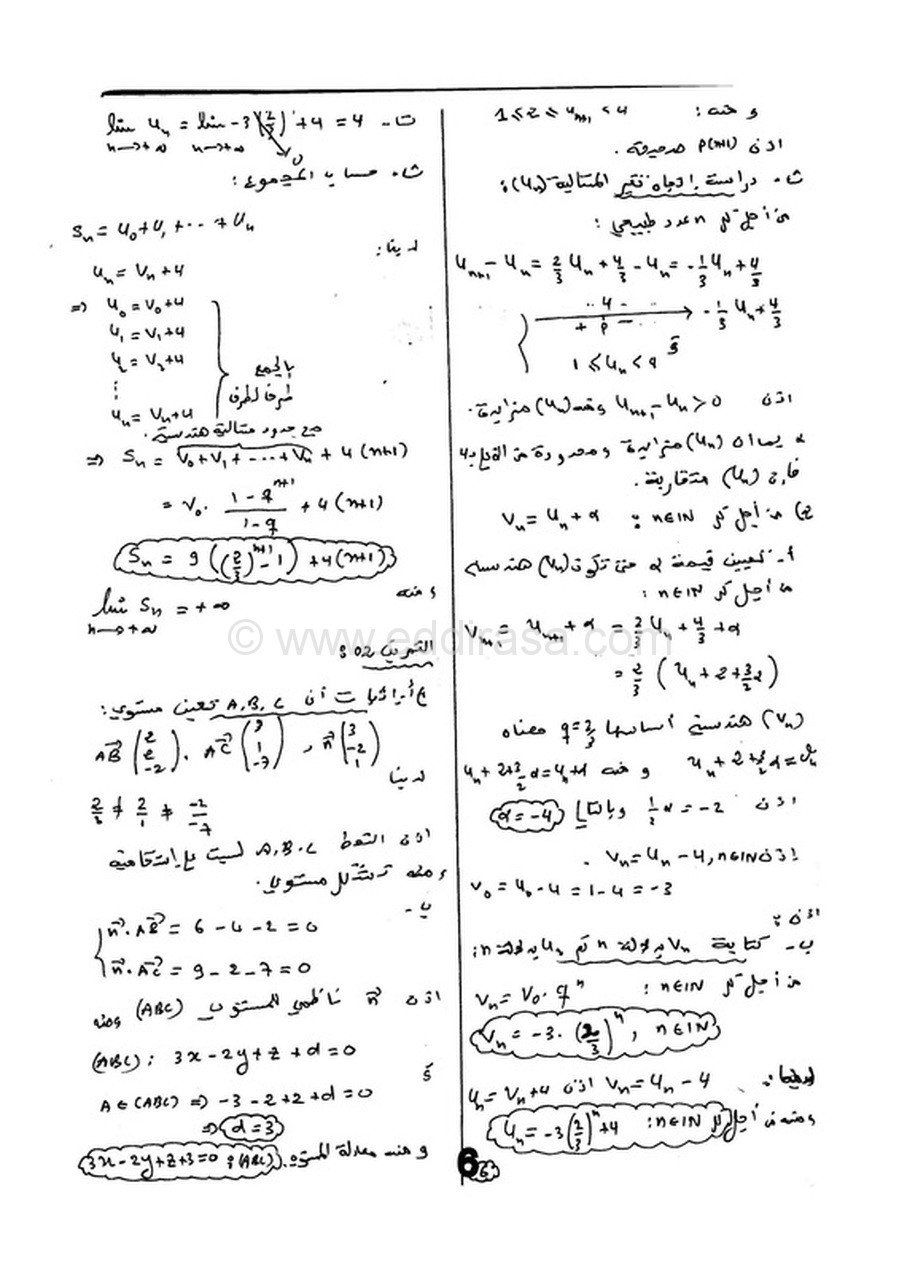 و منه: 1 ≤ 2 ≤ Uₙ₊₁ < 4
اذن P(n+1) صحيحة.
ثا. دراسة اتجاه تغير المتتالية (Uₙ):
من أجل كل n عدد طبيعي:
Uₙ₊₁ - Uₙ = 2/3 Uₙ + 4/3 - Uₙ = -1/3 Uₙ + 4/3
-1/3 Uₙ + 4/3
.. 4 ..
+ 0 -
و
1 ≤ Uₙ < 4
اذن Uₙ₊₁ - Uₙ > 0 ومنه (Uₙ) متزايدة.
بما ان (Uₙ) متزايدة و محدودة من الاعلى
فإن (Uₙ) متقاربة.
2) من أجل كل n∈IN: Vₙ = Uₙ + α
أ- تعيين قيمة α حتى تكون (Vₙ) هندسية
من أجل كل n∈IN:
Vₙ₊₁ = Uₙ₊₁ + α = 2/3 Uₙ + 4/3 + α
= 2/3 (Uₙ + 2 + 3/2 α)
(Vₙ) هندسية أساسها q = 2/3 معناه
Uₙ + 2 + 3/2 α = Vₙ و منه Uₙ + 2 + 3/2 α = Uₙ + α
اذن 1/2 α = -2 وبالتالي α = -4
اذن Vₙ = Uₙ - 4, n∈IN.
V₀ = U₀ - 4 = 1 - 4 = -3
اذن:
ب- كتابة Vₙ بدلالة n ثم Uₙ بدلالة n:
من أجل كل n∈IN: Vₙ = V₀ · qⁿ
Vₙ = -3 · (2/3)ⁿ, n∈IN
Vₙ = Uₙ - 4 اذن Uₙ = Vₙ + 4
ومنه من أجل كل n∈IN: Uₙ = -3(2/3)ⁿ + 4
ت- lim Uₙ = lim -3(2/3)ⁿ + 4 = 4
n→+∞ n→+∞ 0
ثا. حساب المجموع:
Sₙ = U₀ + U₁ + ··· + Uₙ
لدينا:
Uₙ = Vₙ + 4
⇒ U₀ = V₀ + 4
U₁ = V₁ + 4
U₂ = V₂ + 4
⋮
بالجمع
طرفا لطرف
Uₙ = Vₙ + 4
مج حدود متتالية هندسية.
⇒ Sₙ = V₀ + V₁ + ··· + Vₙ + 4(n+1)
= V₀ · (1 - qⁿ⁺¹)/(1 - q) + 4(n+1)
Sₙ = 9((2/3)ⁿ⁺¹ - 1) + 4(n+1)
ومنه
lim Sₙ = +∞
n→+∞
© www.eddirasa.com
التمرين 02:
1) أ- اثبات أن A, B, C تعين مستوي:
AB⃗ (2 2 -2), AC⃗ (3 1 -7), n⃗ (3 -2 1)
لدينا
2/3 ≠ 2/1 ≠ -2/-7
اذن النقط A, B, C ليست على استقامية
ومنه تشكل مستوي.
ب-
n⃗·AB⃗ = 6 - 4 - 2 = 0
n⃗·AC⃗ = 9 - 2 - 7 = 0
اذن n⃗ ناظمي للمستوي (ABC) ومنه
(ABC): 3x - 2y + z + d = 0
A ∈ (ABC) ⇒ -3 - 2 + 2 + d = 0
⇒ d = 3
و منه معادلة المستوي (ABC): 3x - 2y + z + 3 = 0
6
6